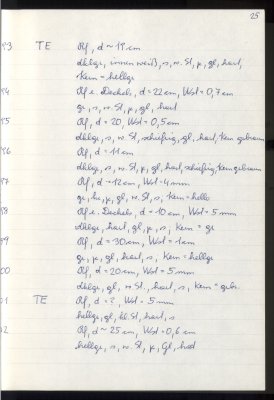 25
93 TE Rf, d ~ 19 cm
dklgr, innen weiß, s, w. St, p, gl, hart,
Kern = hellgr
94 Rf e. Deckels, d = 22 cm, Wst = 0,7 cm
gr, s, w. St, p, gl, hart
95 Rf, d = 20, Wst = 0,5 cm
dklgr, s, w. St, schiefrig, gl, hart, Kern gebrann
96 Rf, d = 11 cm
dklgr, s, w. St, p, gl, hart, schiefrig, Kern gebrann
97 Rf, d ~ 12 cm, Wst = 4 mm
gr, hr, p, gl, w. St, s, Kern = hellb
98 Rf e. Deckels, d = 10 cm, Wst = 5 mm
dklgr, hart, gl, p, s, Kern = gr
99 Rf, d = 30 cm, Wst = 1 cm
gr, p, gl, hart, s, Kern = hellgr
00 Rf, d = 20 cm, Wst = 5 mm
dklgr, gl, w. St, hart, s, Kern = gebr.
01 TE Rf, d = ?, Wst = 5 mm
hellgr, gl, kl. St, hart, s
02 Rf, d ~ 25 cm, Wst = 0,6 cm
hellgr, s, w. St, p, Gl, hart